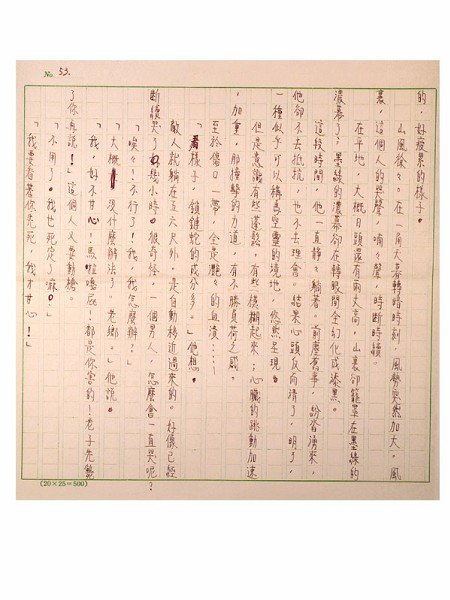 No. 53.
的，好疲累的樣子。
山風徐々。在一角天暮轉暗時刻，風勢突然加大，風
裏，這個人的哭聲，喃々聲，時斷時續。
在平地，大概日頭還有兩丈高，山裏卻籠罩在墨綠的
濃暮了；墨綠的濃幕卻在轉眼間全幻化成漆黑。
這段時間，他一直靜々躺著。前塵舊事，紛沓湧來，
他卻不去抵抗，也不去理會。結果心頭反而清了，明了，
一種似乎可以稱為空靈的境地，悠然呈現。
但是意識有些蓬鬆，有些模糊起來；心臟的跳動加速
，加重，那撞擊的力道，有不勝負荷之感。
至於傷口一帶，全是灩々的血漬……
「看樣子，鎖鏈蛇的成分多。」他想。
敵人就躺在五六尺外，是自動移近過來的。好像已經
斷續哭了幾小時。很奇怪，一個男人，怎麼會一直哭呢？
「唉々！不行了，我，我怎麼辦？」
「大概，沒什麼辦法了。老鄉。」他說。
「我，好不甘心！馬拉鳴屁！都是你害的！老子先斃
了你再說！」這個人又要動槍。
「不用了。我也死定了嘛。」
「我要看著你先死，我才甘心！」
(20×25=500)